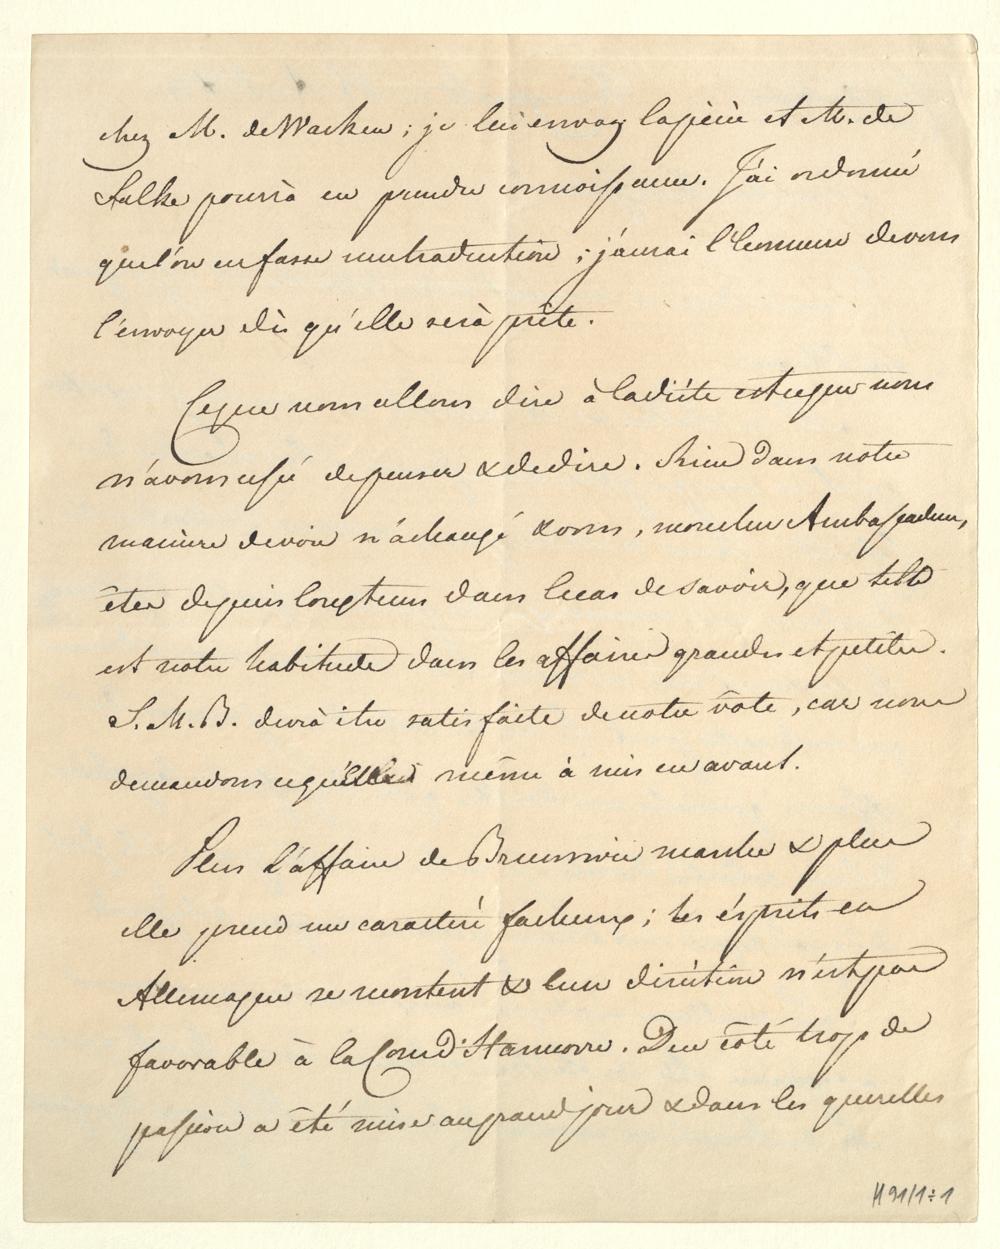 chez M. de Wacken ; je lui envoye la pièce et M. de
Falke pourrà en prendre connoissance. J'ai ordonné
que l'on en fasse une traduction ; j'aurai l'honneur de vous
l'envoyer dès qu'elle serà prête.
Ce que nous allons dire à la diète est ce que nous
n'avons cessé de penser & de dire. Rien dans notre
manière de voir n'à changé & vous, mon cher Ambassadeur,
êtes depuis longtems dans le cas de savoir, que telle
est notre habitude dans les affaires grandes et petites.
S. M. B. devrà être satisfaite de notre vote, car nous
demandons ce qu'Elle même à mis en avant.
Plus l'affaire de Brunsvic marche & plus
elle prend un caractère facheux ; les ésprits en
Allemagne se montent & leur diréction n'est pas
favorable à la Cour d'Hannovre. D'un côté trop de
passion a été mise au grand jour & dans les querelles
H 91/1÷1